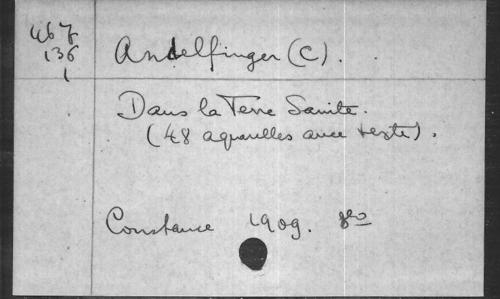 467
136
1
Andelfinger (C).
Dans la Terre Sainte.
(48 aquarelles avec texte).
Constance 1909. 8vo